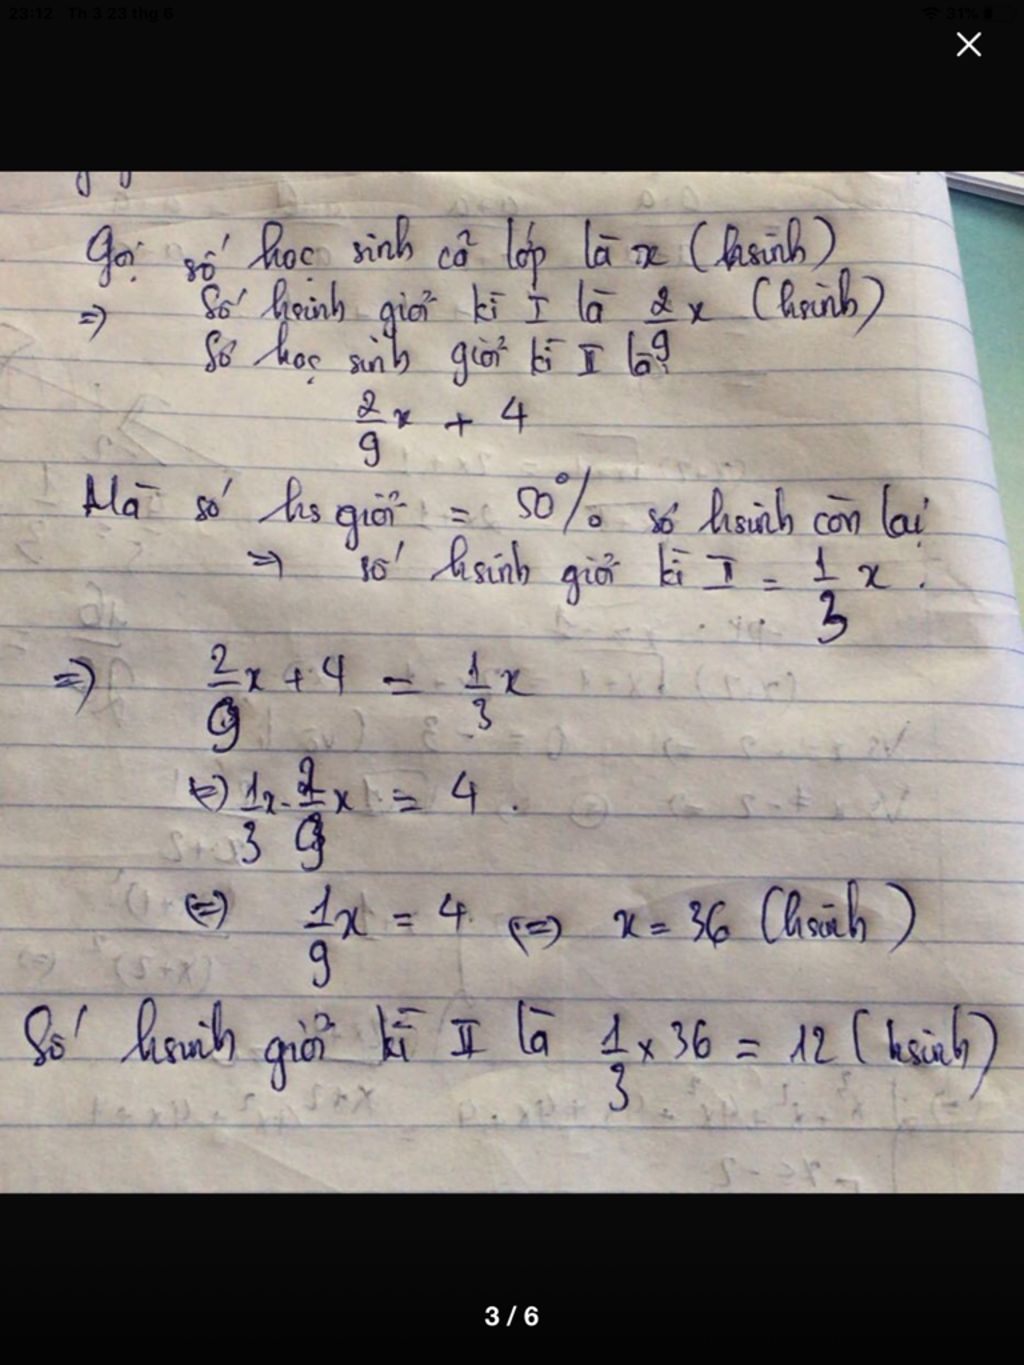 23:12 Th 3 23 thg 6
31%
Gọi số học sinh cả lớp là x (hsinh)
=> Số hsinh giỏi kì I là 2/9 x (hsinh)
Số học sinh giỏi kì II là:
2/9 x + 4
Mà số hs giỏi = 50% số hsinh còn lại
=> số hsinh giỏi kì II = 1/3 x.
=> 2/9 x + 4 = 1/3 x
<=> 1/3 x - 2/9 x = 4.
<=> 1/9 x = 4 <=> x = 36 (hsinh)
Số hsinh giỏi kì II là 1/3 x 36 = 12 (hsinh)
3 / 6